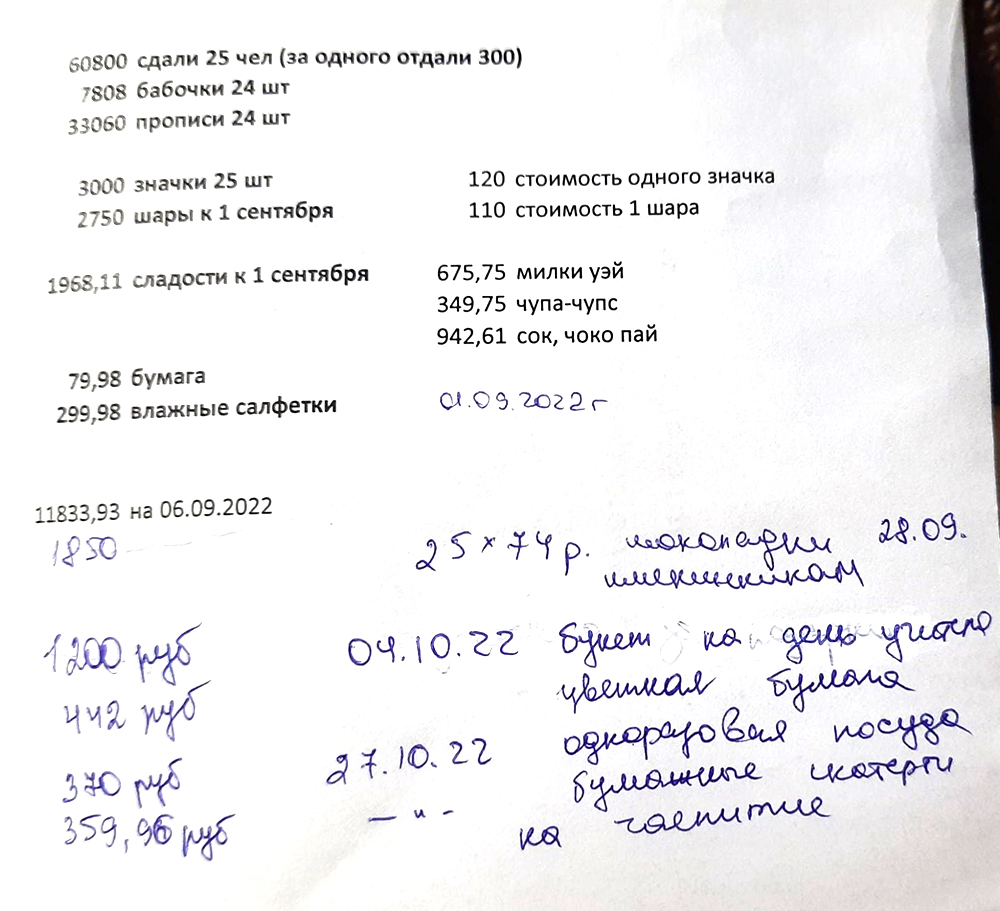 60800 сдали 25 чел (за одного отдали 300)
7808 бабочки 24 шт
33060 прописи 24 шт
3000 значки 25 шт 120 стоимость одного значка
2750 шары к 1 сентября 110 стоимость 1 шара
1968,11 сладости к 1 сентября 675,75 милки уэй
349,75 чупа-чупс
942,61 сок, чоко пай
79,98 бумага
299,98 влажные салфетки 01.09.2022 г
11833,93 на 06.09.2022
1850 25 × 74 р. шоколадки 28.09.
именинникам
1200 руб 04.10.22 букет на день учителя
442 руб цветная бумага
370 руб 27.10.22 одноразовая посуда
359,96 руб — и - бумажные скатерти
на чаепитие